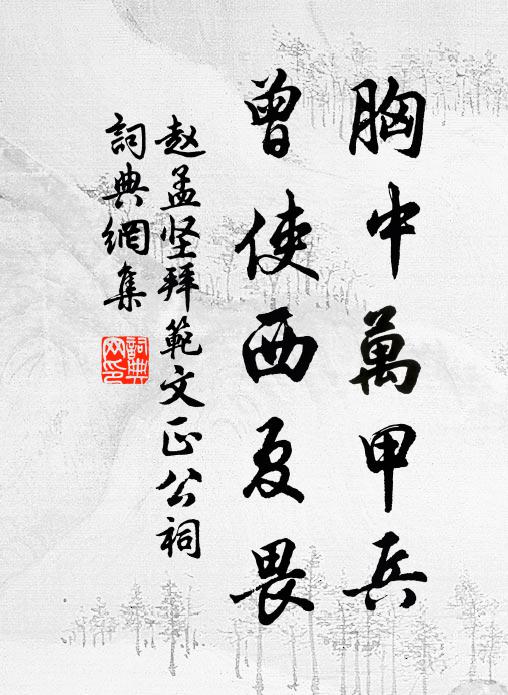 胸中萬甲兵
曾使西夏畏
赵孟坚拜範文正公祠
詞典網集
詞典網印